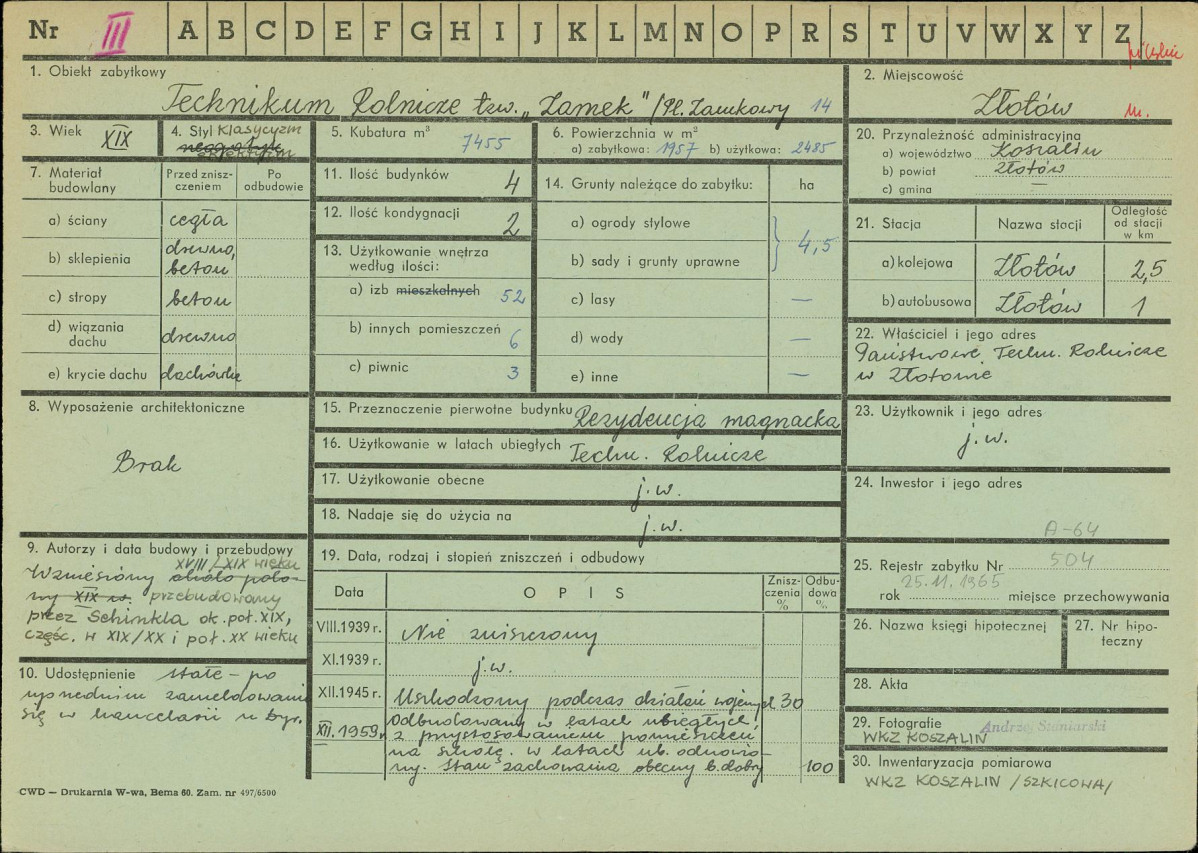 Nr III A B C D E F G H I J K L M N O P R S T U V W X Y Z
pilskie
1. Obiekt zabytkowy
Technikum Rolnicze tzw. „Zamek" /Pl. Zamkowy 14
2. Miejscowość
Złotów m.
3. Wiek XIX
4. Styl Klasycyzm
neogotyk
eklektyzm
5. Kubatura m³ 7455
6. Powierzchnia w m²
a) zabytkowa: 1957 b) użytkowa: 2485
20. Przynależność administracyjna
a) województwo Koszalin
b) powiat Złotów
c) gmina —
7. Materiał budowlany
Przed zniszczeniem
Po odbudowie
a) ściany cegła
b) sklepienia drewno, beton
c) stropy beton
d) wiązania dachu drewno
e) krycie dachu dachówka
11. Ilość budynków 4
12. Ilość kondygnacji 2
13. Użytkowanie wnętrza
według ilości:
a) izb mieszkalnych 52
b) innych pomieszczeń 6
c) piwnic 3
14. Grunty należące do zabytku: ha
a) ogrody stylowe
} 4,5
b) sady i grunty uprawne
c) lasy —
d) wody —
e) inne —
21. Stacja
Nazwa stacji
Odległość od stacji w km
a) kolejowa Złotów 2,5
b) autobusowa Złotów 1
22. Właściciel i jego adres
Państwowe Techn. Rolnicze
w Złotowie
8. Wyposażenie architektoniczne
Brak
15. Przeznaczenie pierwotne budynku Rezydencja magnacka
16. Użytkowanie w latach ubiegłych Techn. Rolnicze
17. Użytkowanie obecne j.w.
18. Nadaje się do użycia na j.w.
23. Użytkownik i jego adres
j.w.
24. Inwestor i jego adres
A-64
9. Autorzy i data budowy i przebudowy
XVIII/XIX wieku
Wzniesiony około poło-
wy XIX w. przebudowany
przez Schinkla ok. poł. XIX,
częśc. w XIX/XX i poł. XX wieku
10. Udostępnienie stałe - po
uprzednim zameldowaniu
się w kancelarii u dyr.
19. Data, rodzaj i stopień zniszczeń i odbudowy
Data
OPIS
Zniszczenia %
Odbudowa %
VIII.1939 r. Nie zniszczony
XI.1939 r. j.w.
XII.1945 r. Uszkodzony podczas działań wojennych 30
XII.1959 r. Odbudowany w latach ubiegłych
z przystosowaniem pomieszczeń
na szkołę. w latach ub. odnowio-
ny. Stan zachowania obecny b. dobry 100
25. Rejestr zabytku Nr 504
25.11.1965
rok miejsce przechowywania
26. Nazwa księgi hipotecznej
27. Nr hipoteczny
28. Akta
29. Fotografie Andrzej Staniarski
WKZ KOSZALIN
30. Inwentaryzacja pomiarowa
WKZ KOSZALIN /SZKICOWA/
CWD — Drukarnia W-wa, Bema 60. Zam. nr 497/6500